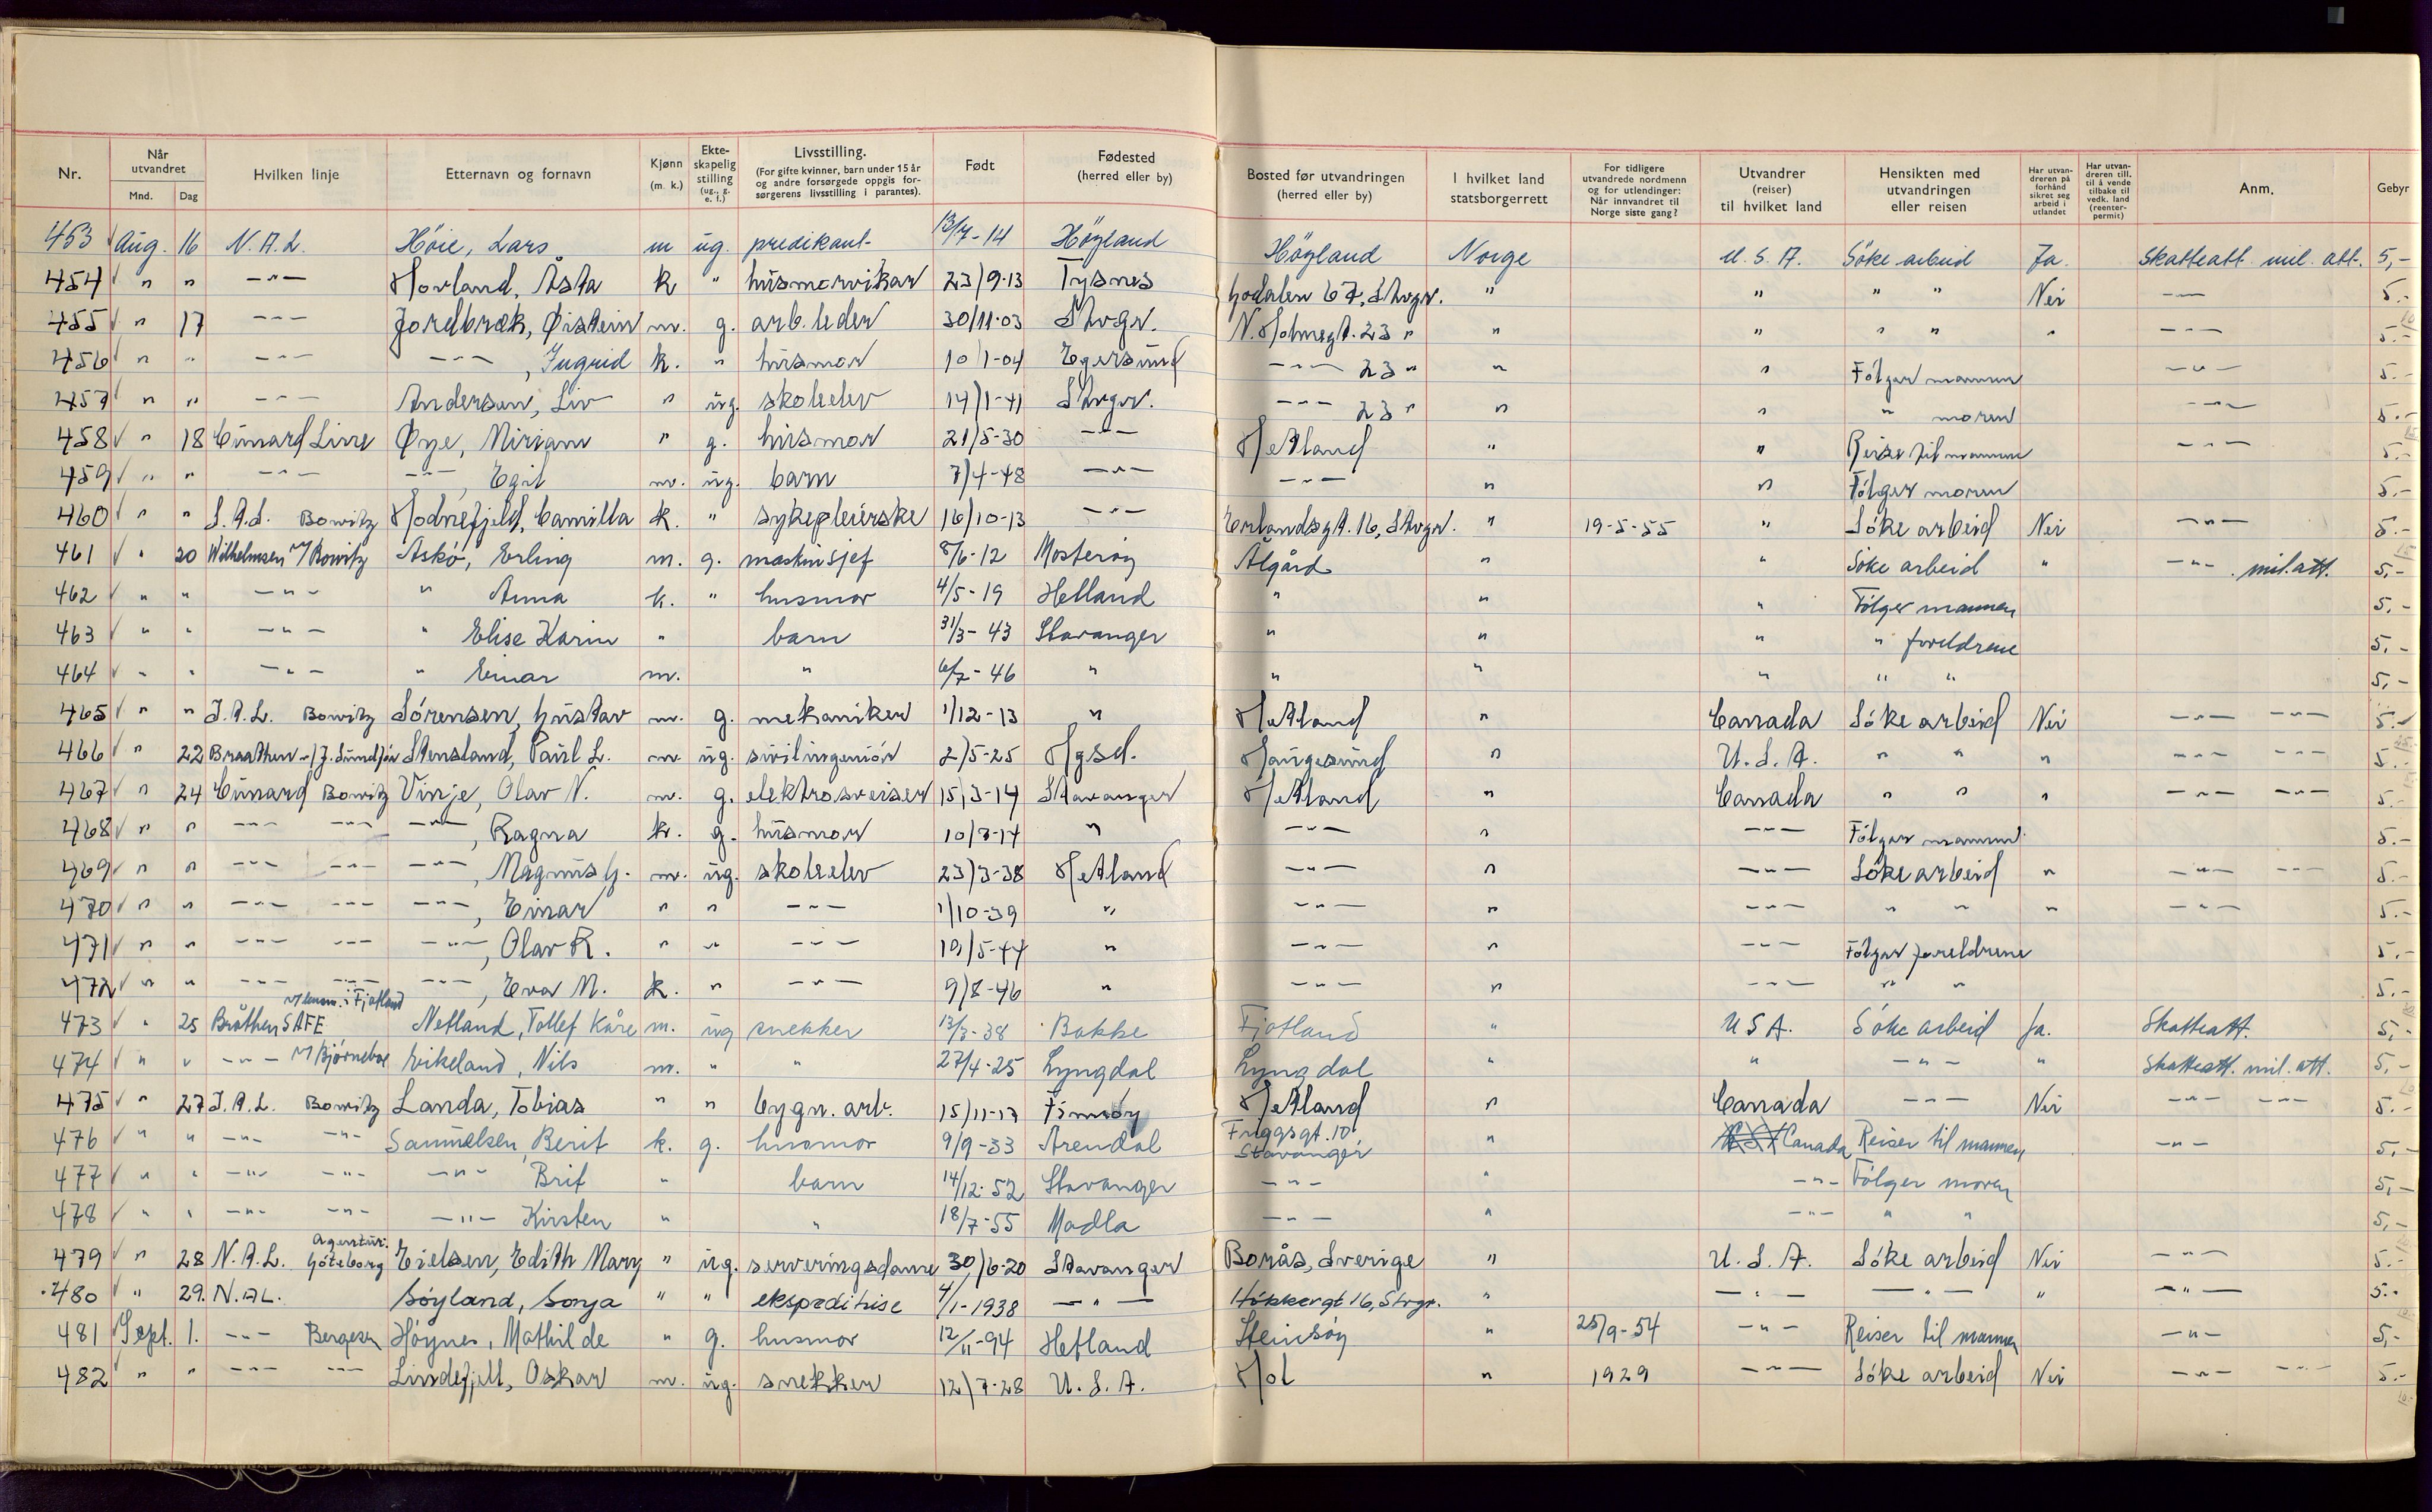 Nr. | Når utvandret Mnd. Dag | Hvilken linje | Etternavn og fornavn | Kjønn (m. k.) | Ekteskapelig stilling (ug., g. e. f.) | Livsstilling. (For gifte kvinner, barn under 15 år og andre forsørgede oppgis forsørgerens livsstilling i parantes). | Født | Fødested (herred eller by) | Bosted før utvandringen (herred eller by) | I hvilket land statsborgerrett | For tidligere utvandrede nordmenn og for utlendinger: Når innvandret til Norge siste gang? | Utvandrer (reiser) til hvilket land | Hensikten med utvandringen eller reisen | Har utvandreren på forhånd sikret seg arbeid i utlandet | Har utvandreren till. til å vende tilbake til vedk. land (reenterpermit) | Anm. | Gebyr
453 Aug. 16 N.A.L. Høie, Lars m ug. predikant 13/7-14 Höyland Höyland Norge U.S.A. Söke arbeid Ja. Skatteatt. mil. att. 5,-
454 " " -"- Hovland, Åsta k " husmorvikar 23/9-13 Tysnes Godalen 67, Stvgr. " " " " Nei -"- 5.-
455 " 17 -"- Jordbræk, Øistein m. g. arb.leder 30/11-03 Stvgr. N. Holmegt. 23 " " " " " " -"- 5.-
456 " " -"- -"-, Ingrid k. " husmor 10/1-04 Egersund -"- 23 " " " Følger mannen -"- 5.-
457 " " -"- Andersen, Liv " ug. skoleelev 14/1-41 Stvgr. -"- 23 " " " " moren -"- 5.-
458 " 18 Cunard Line Øye, Miriam " g. husmor 21/5-30 -"- Hetland " " Reise til mannen -"- 5.-
459 " " -"- -"-, Egil m. ug. barn 7/4-48 -"- -"- " " Følger moren 5.-
460 " " S.A.S. Bowitz Hodnefjeld, Camilla k. " sykepleierske 16/10-13 -"- Erlandsgt. 16, Stvgr. " 19-5-55 " Söke arbeid Nei -"- 5.-
461 " 20 Wilhelmsen v/Bowitz Askö, Erling m. g. maskinsjef 8/6-12 Mosteröy Ålgård " " Söke arbeid " -"- mil.att. 5,-
462 " " -"- " Anna k. " husmor 4/5-19 Hetland " " " Følger mannen 5,-
463 " " -"- " Elise Karin " barn 31/3-43 Stavanger " " " " foreldrene 5,-
464 " " -"- " Einar m. " 6/7-46 " " " " " " 5,-
465 " " S.A.L. Bowitz Sörensen, Gustav m. g. mekaniker 1/12-13 " Hetland " Canada Söke arbeid Nei -"- -"- 5.-
466 " 22 Braathen Stensland, Paul L. m. ug. sivilingeniör 2/5-25 Hgsd. Haugesund " U.S.A. " " " -"- -"- 5.-
467 " 24 Cunard Bowitz Vinje, Olav N. m. g. elektrosveiser 15/3-14 Stavanger Hetland " Canada " " " -"- -"- 5.-
468 " " -"- -"- -"-, Ragna k. g. husmor 10/8-14 " -"- " -"- Følger mannen 5.-
469 " " -"- -"- -"-, Magnus G. m. ug. skoleelev 23/3-38 Hetland -"- " -"- Söke arbeid " -"- -"- 5.-
470 " " -"- -"- -"-, Einar " " -"- 1/10-39 " -"- " -"- " " " -"- 5.-
471 " " -"- -"- -"-, Olav R. " " -"- 19/5-44 " -"- " -"- Følger foreldrene 5.-
472 " " -"- -"- -"-, Eva M. k. " -"- 9/8-46 " -"- " -"- " " 5.-
473 " 25 Bråthen SAFE Netland, Tollef Kåre m. ug snekker 13/3-38 Bakke Fjotland " USA. Söke arbeid Ja. Skatteatt. 5,-
474 " " -"- v/Björnebo Eikeland, Nils m. " " 27/4-25 Lyngdal Lyngdal " " -"- " Skatteatt. mil. att. 5,-
475 " 27 S.A.L. Bowitz Landa, Tobias " " bygn. arb. 15/11-17 Finnöy Hetland " Canada -"- Nei -"- -"- 5.-
476 " " -"- -"- Samuelsen, Berit k. g. husmor 9/9-33 Arendal Friggsgt. 10 Stavanger " Canada Reiser til mannen -"- 5,-
477 " " -"- -"- -"- Brit " barn 14/12-52 Stavanger -"- " -"- Følger moren 5,-
478 " " -"- -"- -"- Kirsten " " 18/7-55 Madla -"- " -"- " " 5,-
479 " 28 N.A.L. Agentur. Göteborg Eielsen, Edith Mary " ug. serveringsdame 30/6-20 Stavanger Borås, Sverige " U.S.A. Söke arbeid Nei -"- 5.-
480 " 29. N.AL. Söyland, Sonja " " ekspeditrise 4/1-1938 -"- Hökkergt 16, Stvgr. " -"- -"- " -"- 5.-
481 Sept. 1. -"- Bergesen Höynes, Mathilde " g. husmor 12/11-94 Hetland Steinsöy " 25/9-54 -"- Reiser til mannen -"- 5,-
482 " " -"- -"- Lindefjell, Oskar m. ug. snekker 12/7-28 U.S.A. Hol " 1929 -"- Söke arbeid Nei -"- -"- 5.-